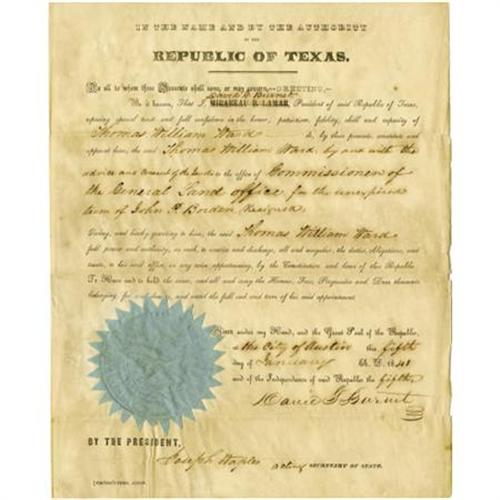 IN THE NAME AND BY THE AUTHORITY
OF THE
REPUBLIC OF TEXAS.
To all to whom these Presents shall come, or may concern,—GREETING,—
David G Burnet
We it known, That I, MIRABEAU B. LAMAR, President of said Republic of Texas,
reposing special trust and full confidence in the honor, patriotism, fidelity, skill and capacity of
Thomas William Ward do, by these presents, constitute and
appoint him, the said Thomas William Ward, by and with the
advice and consent of the Senate to the office of Commissioner of
the General Land office for the unexpired
term of John P. Borden Resigned
Giving, and hereby granting to him, the said Thomas William Ward
full power and authority, to execute and discharge, all and singular, the duties, obligations, and
trusts, to his said office, in any wise appertaining, by the Constitution and laws of this Republic
To Have and to hold the same, and all and every the Honors, Fees, Perquisites and Dues thereunto
belonging, for and during, and until the full end and term of his said appointment
Given under my Hand, and the Great Seal of the Republic,
at the City of Austin this fifth
day of January A. D. 1841
and of the Independence of said Republic the fifth
David G Burnet
BY THE PRESIDENT,
Joseph Waples acting SECRETARY OF STATE.